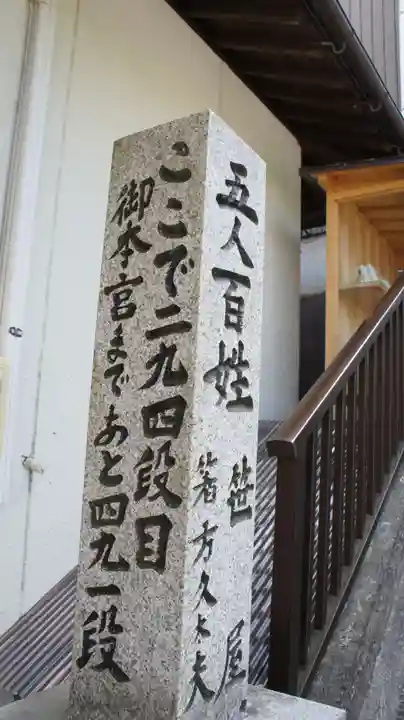 ここで二九四段目
御本宮まであと四九一段
五人百姓 笹屋
箸方久太夫